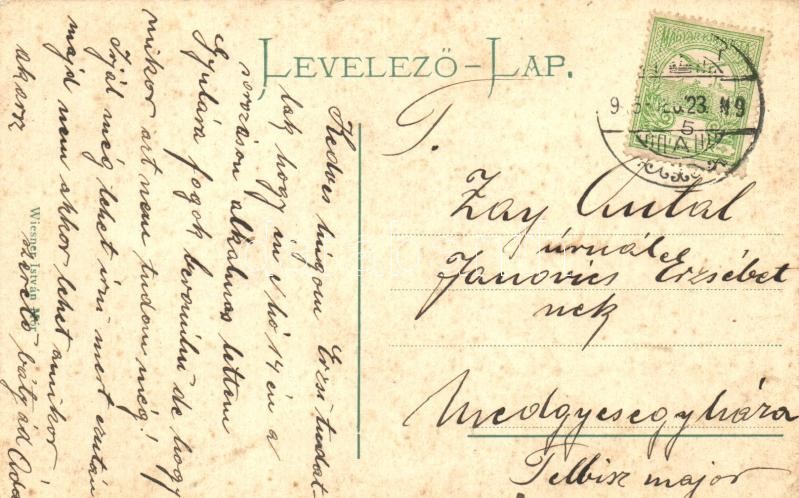 LEVELEZŐ-LAP.
MAGYAR KIR. POSTA
T.
Zay Antal
úrnál
Janovics Erzsébet
nek
Medgyesegyháza
Telbisz major
Kedves húgom Erzsi tudat-
lak hogy én e hó 14 én a
sorozáson alkalmas lettem
Gyulára fogok berándulni de hogy
mikor azt nem tudom még!
Irjál még lehet irni mert ezután
majd nem akkor lehet amikor
akarsz
szerető bátyád
Wiesner István Mór